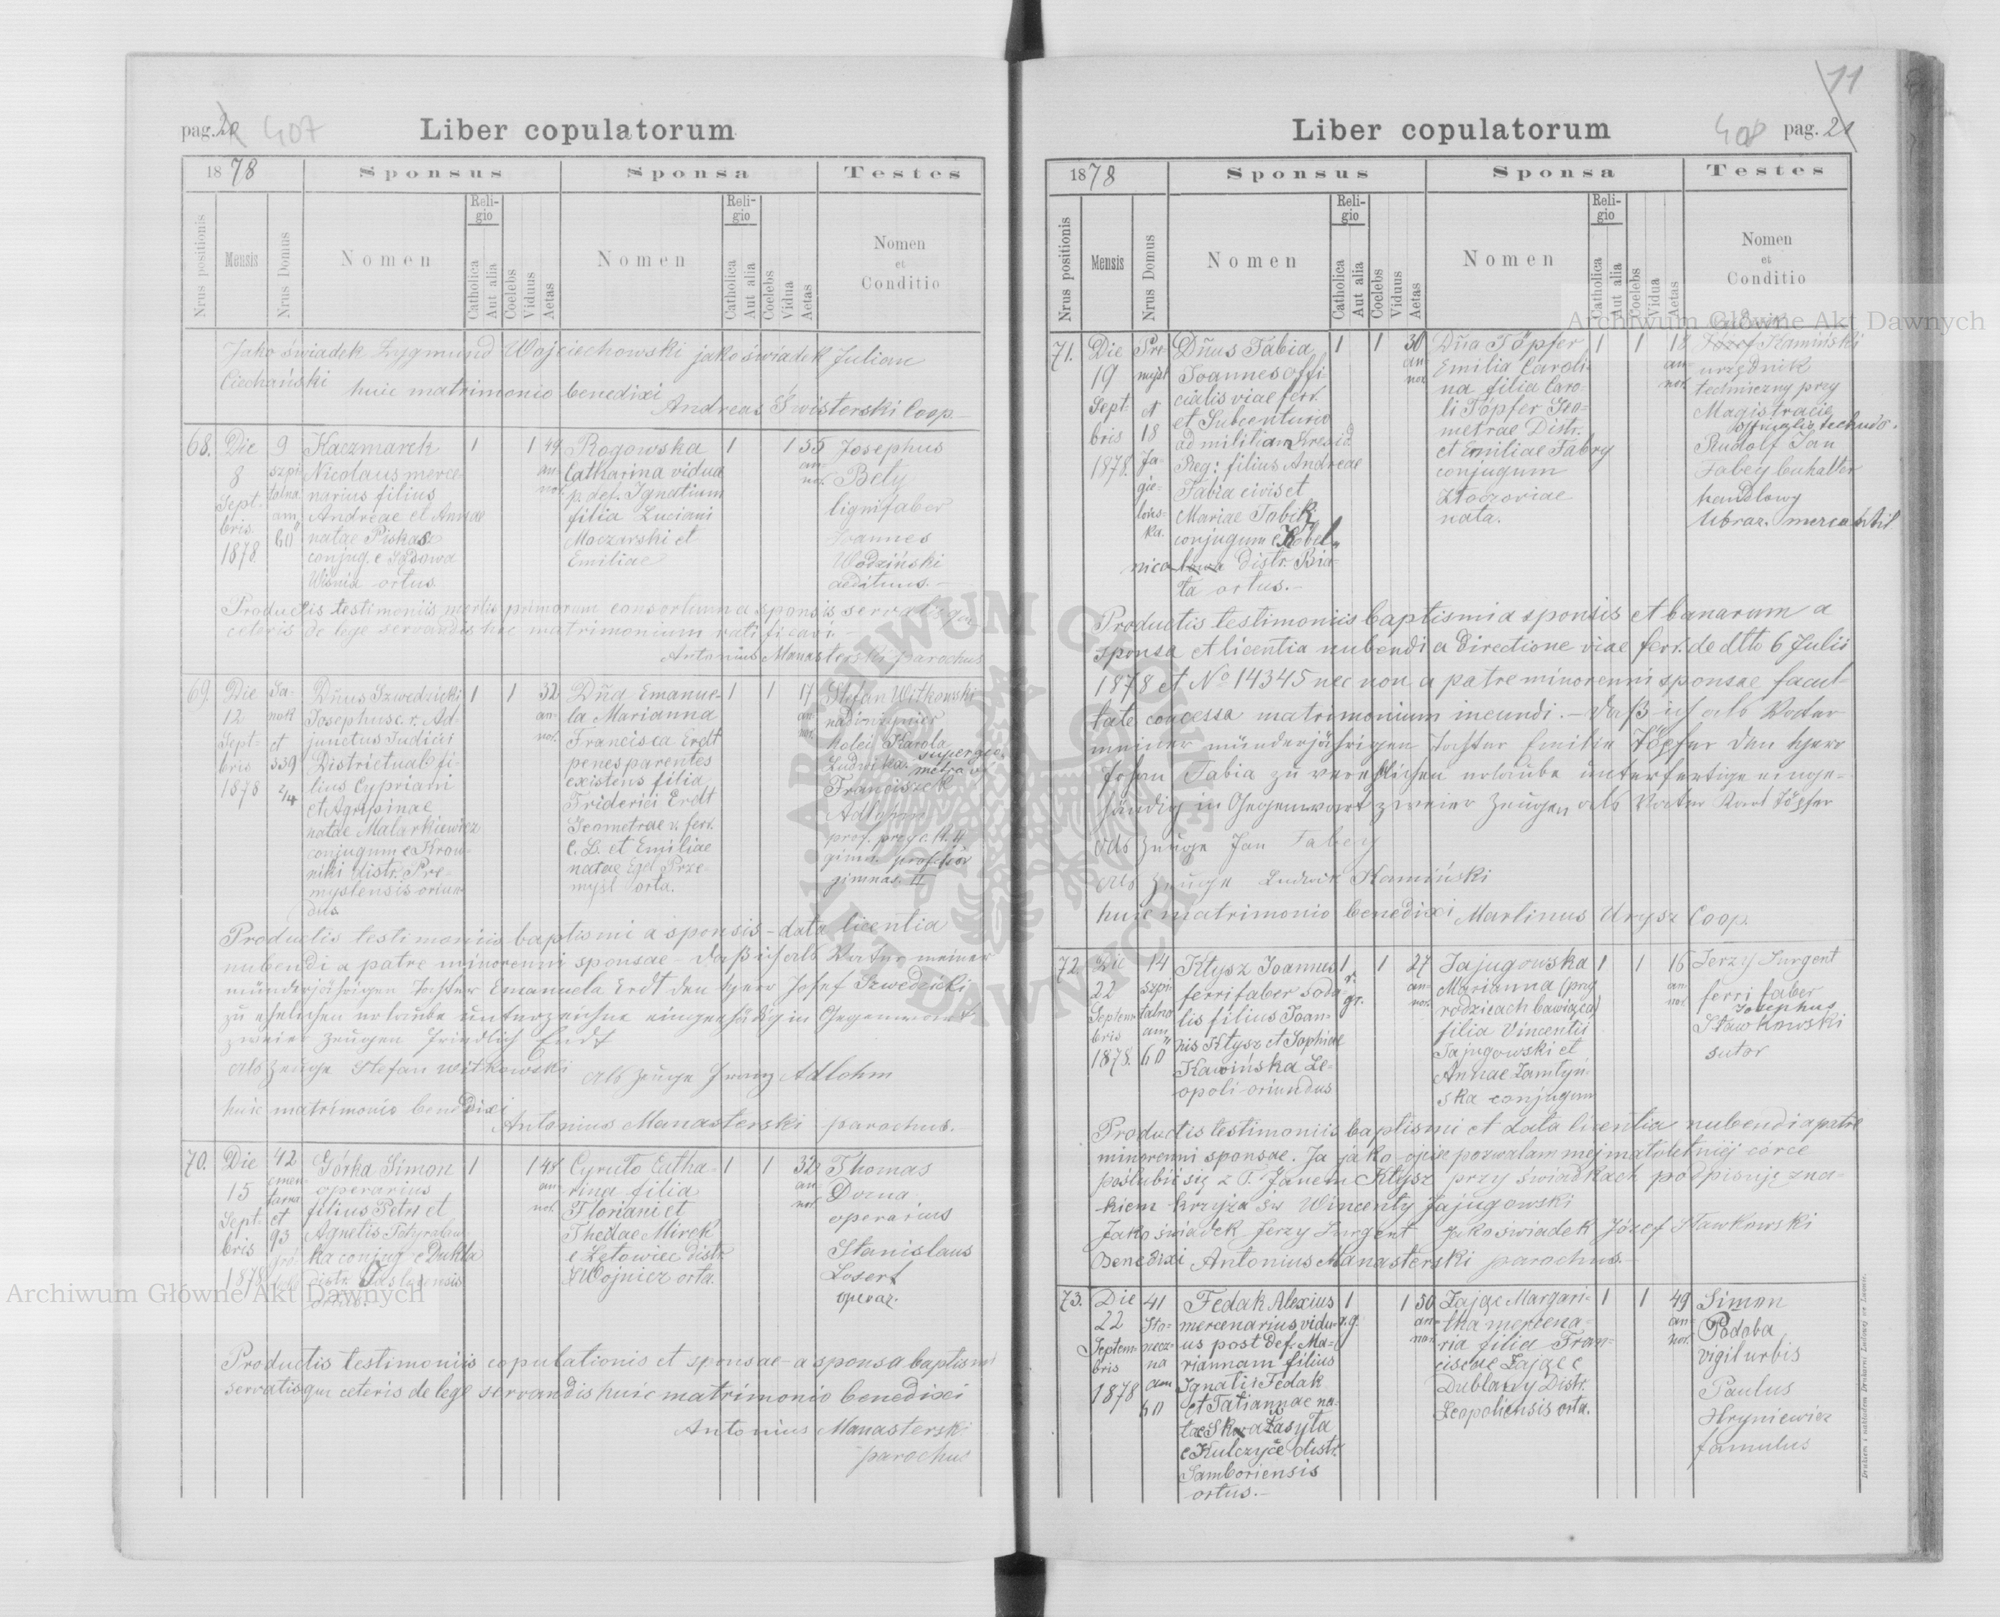 pag. 20 407
Liber copulatorum
1878
Sponsus
Sponsa
Testes
Nrus positionis
Mensis
Nrus Domus
Nomen
Religio
Catholica
Aut alia
Coelebs
Viduus
Aetas
Nomen
Religio
Catholica
Aut alia
Coelebs
Vidua
Aetas
Nomen
et
Conditio
Jako świadek Zygmund Wojciechowski jako świadek Julian
Ciechański
huic matrimonio benedixi
Andreas Świsterski Coop.
68.
Die
8
Sept-
bris
1878
9
szpi
talna
am
60
Kaczmarek
Nicolaus merce-
narius filius
Andreae et Annae
natae Piskas
conjug. e Sądowa
Wisnia ortus
1
1
49
an-
nor.
Rogowska
Catharina vidua
p. def. Ignatium
filia Luciani
Moczarski et
Emiliae
1
1
55
an-
nor.
Josephus
Bely
lignifaber
Joannes
Wodziński
aedituus.
Productis testimoniis mortis primorum consortum a sponsis servatisque
ceteris de lege servandis hoc matrimonium ratificavi.
Antonius Manasterski parochus
69.
Die
12
Sept-
bris
1878
Sa-
nok
et
339
2/4
Dñus Szwedzicki
Josephus c. r. Ad-
junctus Judicii
Districtual. fi-
lius Cypriani
et Agripinae
natae Malarkiewicz
conjugum e Krow-
niki distr. Pre-
mysliensis oriun
dus
1
1
32
an-
nor.
Dña Emanue-
la Marianna
Francisca Erdt
penes parentes
existens filia
Friderici Erdt
Geometrae v. ferr.
C. L. et Emiliae
natae Egel Prze-
mysl orta.
1
1
17
an-
nor.
Stefan Witkowski
nadinżynier
kolei Karola
Ludwika. supergeo-
metra v.f.
Franciszek
Adlohm
gimn. professor
gimnas. II
Productis testimoniis baptismi a sponsis - data licentia
nubendi a patre minorenni sponsae - Daß ich als Vater meiner
münderjährigen Tochter Emanuela Erdt den Herr Josef Szwedzicki
zu ehelichen erlaube unterzeichne eingenhädig in Gegenwart
zweier Zeugen Friedlich Erdt
als Zeuge Stefan Witkowski als Zeuge Franz Adlohm
huic matrimonio benedixi
Antonius Manasterski parochus.
70.
Die
15
Sept-
bris
1878
42
cmen
tarna
et
93
Górka Simon
operarius
filius Petri et
Agnetis
ka conjug e Dukla
distr. Jaslocensis
ortus.
1
1
48
an-
nor.
Cyruto Catha-
rina filia
Floriani et
Theclae Mirek
e Łętowice distr.
Wojnicz orta.
1
1
32
an-
nor.
Thomas
Dorna
operarius
Stanislaus
Losert
operar.
Productis testimoniis copulationis et sponsae a sponsa baptismi
servatisque ceteris de lege servandis huic matrimonio benedixi
Antonius Manasterski
parochus
11
Liber copulatorum
408 pag. 21
1878
Sponsus
Sponsa
Testes
Nrus positionis
Mensis
Nrus Domus
Nomen
Religio
Catholica
Aut alia
Coelebs
Viduus
Aetas
Nomen
Religio
Catholica
Aut alia
Coelebs
Vidua
Aetas
Nomen
et
Conditio
71.
Die
19
Sept-
bris
1878.
Pre-
mysl
et
18
Ja-
gie-
lońs-
ka.
Dñus Fabia
Joannes offi-
cialis viae ferr.
et Subcenturio
ad militiam Cresid
Reg: filius Andreae
Fabia civis et
Mariae Tobik
conjugum e Kobel-
nica distr. Bia-
ta ortus.
1
1
30
an-
nor.
Dña Töpfer
Emilia Caroli-
na filia Caro-
li Töpfer Geo-
metrae Distr.
et Emiliae Fabry
conjugum
Złoczoviae
nata.
1
1
18
an-
nor.
Ludwik
Józef Kamiński
urzędnik
techniczny przy
Magistracie
Rudolf Jan
Fabey buhalter
handlowy
librar. mercantil
Productis testimoniis baptismi a sponsis et banarum a
sponsa et licentia nubendi a Directione viae ferr. de dtto 6 Julii
1878 et No 14345 nec non a patre minorenni sponsae facul-
tate concessa matrimonium ineundi. - Daß ich als Vater
meiner münderjährigen Tochter Emilie Töpfer den Herr
Johan Fabia zu verehlichen erlaube unterfertige eingen-
händig in Gegenwart zweier Zeugen als Vater Karl Töpfer
als Zeuge Jan Fabey
als Zeuge Ludwik Kamiński
huic matrimonio benedixi Martinus Arysz Coop.
72.
Die
22
Septem
bris
1878.
14
szpi-
talna
am
60
Kłysz Joannes
ferrifaber soda-
lis filius Joan-
nis Kłysz et Sophiae
Kawińska Le-
opoli oriundus
1
r.
gr.
1
27
an-
nor.
Jajugowska
Marianna (przy
rodzicach bawiąca)
filia Vincentii
Jajugowski et
Annae Zamłyń-
ska conjugum
1
1
16
an-
nor.
Jerzy Surgent
ferrifaber
Josephus
Sławkowski
sutor
Productis testimoniis baptismi et data licentia nubendi a patre
minorenni sponsae. Ja jako ojciec pozwalam mej małoletniéj córce
poślubić się z P. Janem Kłysz przy świadkach podpisuję zna-
kiem krzyża św Wincenty Jajugowski
Jako świadek Jerzy Surgent Jako świadek Józef Sławkowski
Benedixi Antonius Manasterski parochus.
73.
Die
22
Septem
bris
1878
41
Sło-
wac-
na
am
60
Fedak Alexius
mercenarius vidu-
us post def. Ma-
riannam filius
Ignatii Fedak
et Tatiannae na-
tae Skora Zasyta
e Kulczyce distr.
Samboriensis
ortus.
1
r.g.
1
50
an-
nor.
Zając Margari-
tha mercena-
ria filia Fran-
ciscae Zając e
Dublany Distr.
Leopoliensis orta.
1
1
49
an-
nor.
Simon
Podoba
vigil urbis
Paulus
Hryniewicz
famulus
Archiwum Główne Akt Dawnych
Archiwum Główne Akt Dawnych
ARCHIWUM GŁÓWNE AKT DAWNYCH